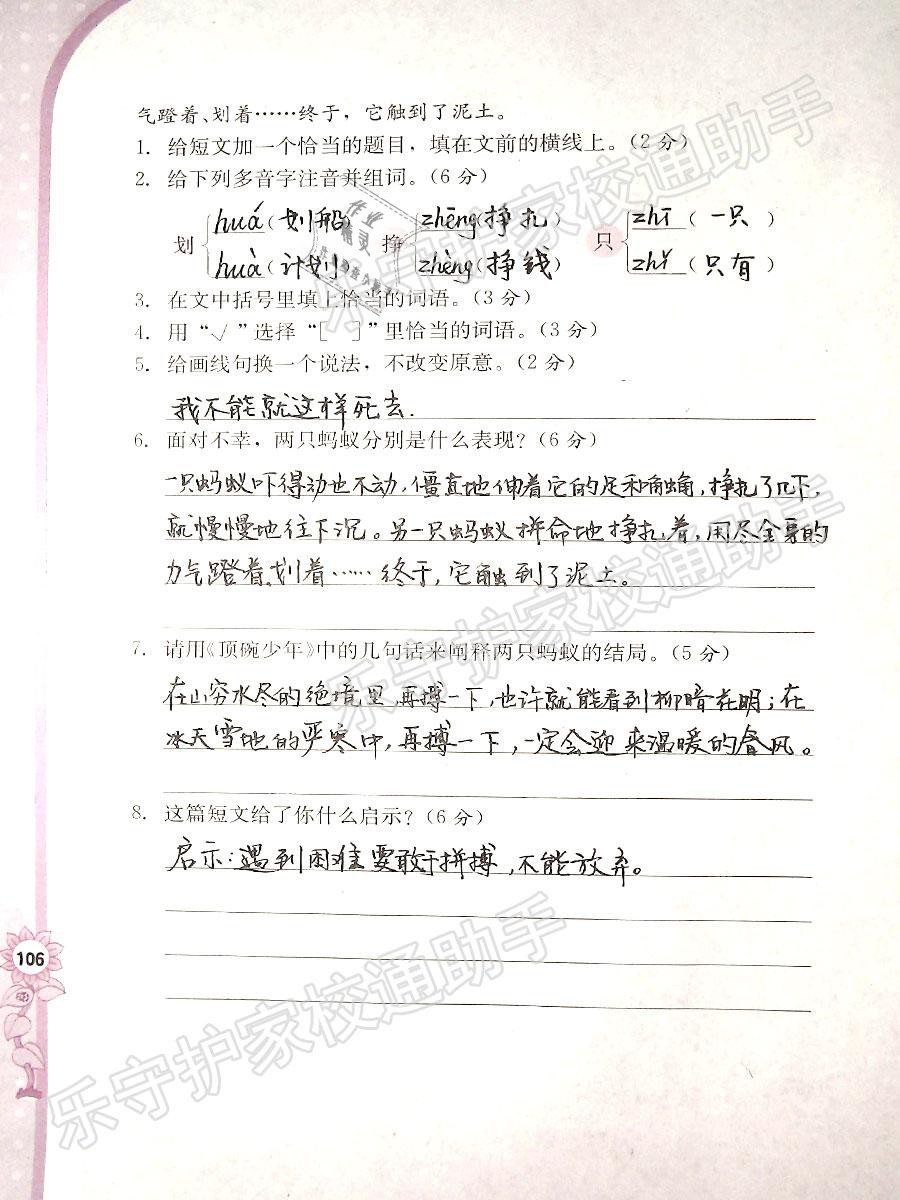 气蹬着、划着……终于，它触到了泥土。
1. 给短文加一个恰当的题目，填在文前的横线上。（2分）
2. 给下列多音字注音并组词。（6分）
划 huá（划船） 挣 zhēng（挣扎） 只 zhī（一只）
huà（计划） zhèng（挣钱） zhǐ（只有）
3. 在文中括号里填上恰当的词语。（3分）
4. 用“√”选择“[ ]”里恰当的词语。（3分）
5. 给画线句换一个说法，不改变原意。（2分）
我不能就这样死去.
6. 面对不幸，两只蚂蚁分别是什么表现？（6分）
一只蚂蚁吓得动也不动，僵直地伸着它的足和触角，挣扎了几下，
就慢慢地往下沉。另一只蚂蚁拼命地挣扎着，用尽全身的
力气蹬着、划着……终于，它触到了泥土。
7. 请用《顶碗少年》中的几句话来阐释两只蚂蚁的结局。（5分）
在山穷水尽的绝境里，再搏一下，也许就能看到柳暗花明；在
冰天雪地的严寒中，再搏一下，一定会迎来温暖的春风。
8. 这篇短文给了你什么启示？（6分）
启示：遇到困难要敢于拼搏，不能放弃。
106
乐守护家校通助手
乐守护家校通助手
乐守护家校通助手
乐守护家校通助手